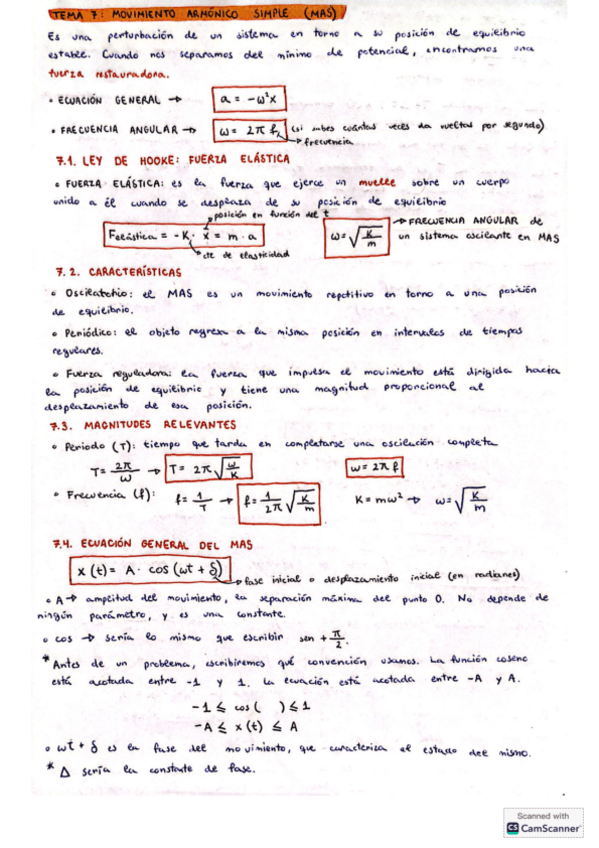 TEMA 7: MOVIMIENTO ARMÓNICO SIMPLE (MAS)
Es una perturbación de un sistema en torno a su posición de equilibrio
estable. Cuando nos separamos del mínimo de potencial, encontramos una
fuerza restauradora.
• ECUACIÓN GENERAL → a = -ω²x
• FRECUENCIA ANGULAR → ω = 2π f (si sabes cuántas veces da vueltas por segundo)
→ frecuencia
7.1. LEY DE HOOKE: FUERZA ELÁSTICA
• FUERZA ELÁSTICA: es la fuerza que ejerce un muelle sobre un cuerpo
unido a él cuando se desplaza de su posición de equilibrio
→ posición en función del t
Felástica = -K · x = m · a
ω = √(K/m) → FRECUENCIA ANGULAR de
un sistema oscilante en MAS
→ cte de elasticidad
7.2. CARACTERÍSTICAS
• Oscilatorio: el MAS es un movimiento repetitivo en torno a una posición
de equilibrio.
• Periódico: el objeto regresa a la misma posición en intervalos de tiempos
regulares.
• Fuerza reguladora: la fuerza que impulsa el movimiento está dirigida hacia
la posición de equilibrio y tiene una magnitud proporcional al
desplazamiento de esa posición.
7.3. MAGNITUDES RELEVANTES
• Periodo (T): tiempo que tarda en completarse una oscilación completa
T = 2π/ω → T = 2π √(ω/K) ω = 2π f
• Frecuencia (f): f = 1/T → f = 1/2π √(K/m) K = mω² → ω = √(K/m)
7.4. ECUACIÓN GENERAL DEL MAS
x (t) = A · cos (ωt + δ) → fase inicial o desplazamiento inicial (en radianes)
• A → amplitud del movimiento, la separación máxima del punto 0. No depende de
ningún parámetro, y es una constante.
• cos → sería lo mismo que escribir sen + π/2.
* Antes de un problema, escribiremos qué convención usamos. La función coseno
está acotada entre -1 y 1. La ecuación está acotada entre -A y A.
-1 ≤ cos ( ) ≤ 1
-A ≤ x (t) ≤ A
• ωt + δ es la fase del movimiento, que caracteriza el estado del mismo.
* Δ sería la constante de fase.
Scanned with
CS CamScanner